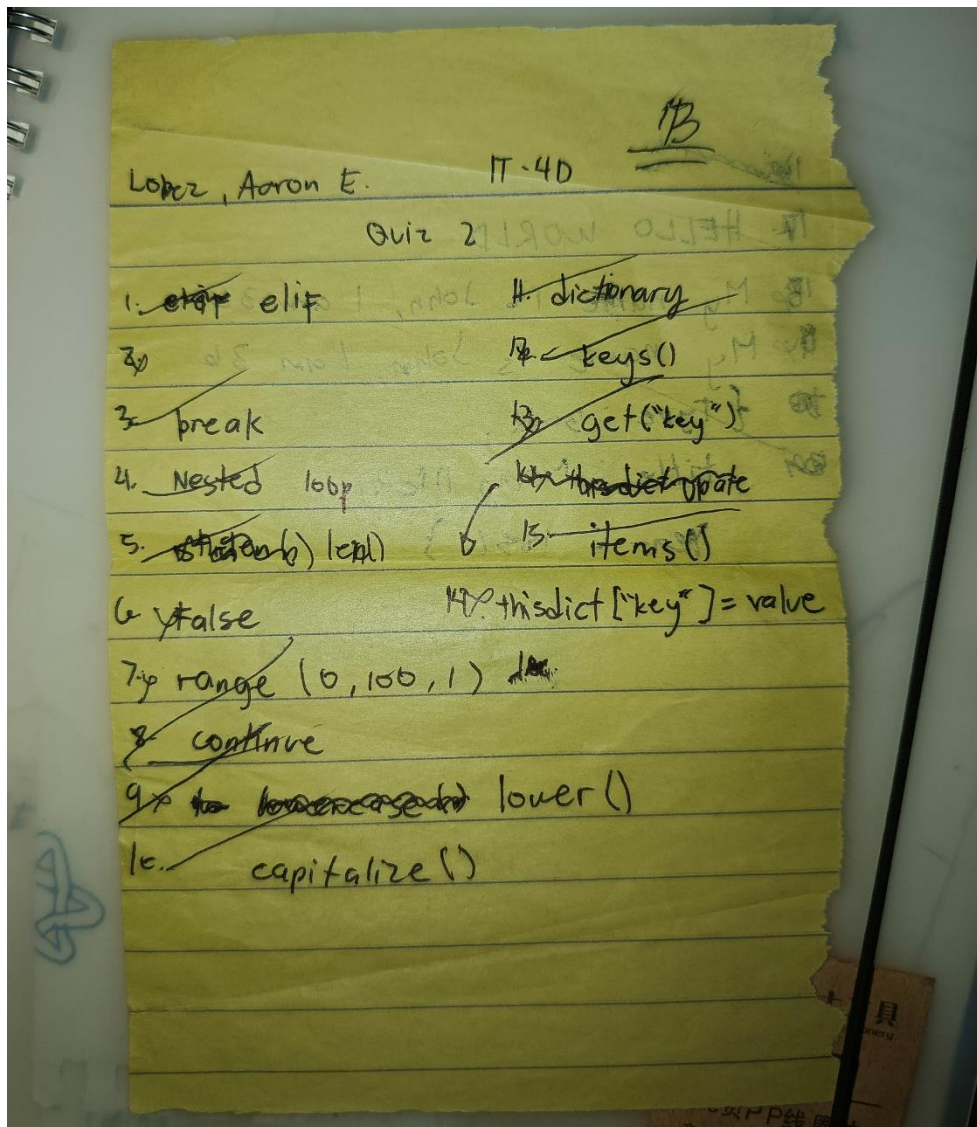 Lopez, Aaron E. IT-4D
Quiz 2
1. elif
2.
3. break
4. Nested loop
5. len()
6. False
7. range (0, 100, 1)
8. continue
9. lower()
10. capitalize()
11. dictionary
12. keys()
13. get("key")
14. thisdict upate
15. items()
14. thisdict["key"] = value
HELLO WORLD
具